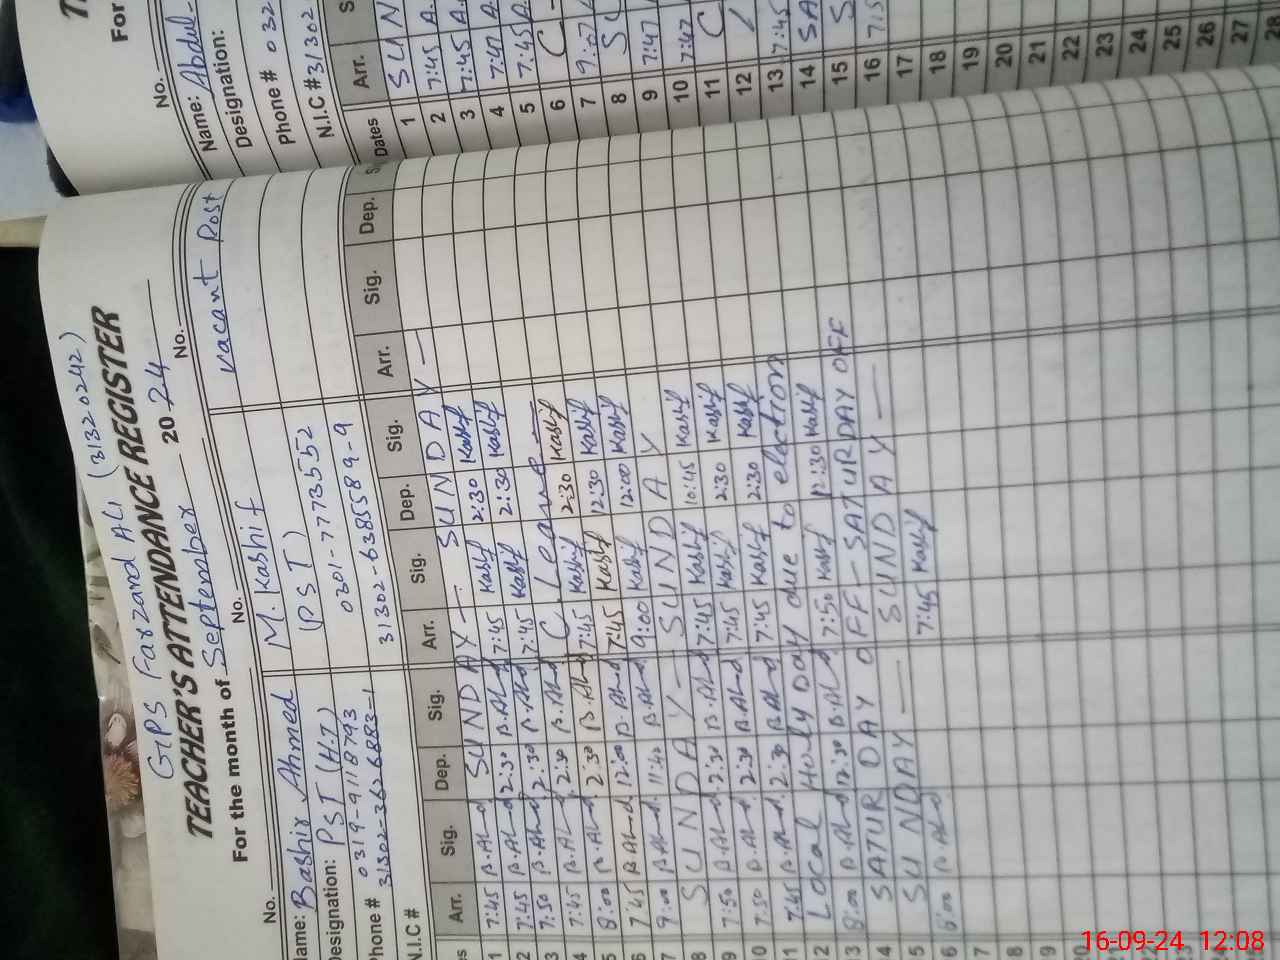 GPS Farzand Ali (31320242)
TEACHER'S ATTENDANCE REGISTER
For the month of September 2024
No. No. No.
Name: Bashir Ahmed M. Kashif vacant Post
Designation: PST (H.T) (PST)
Phone # 0319-9118793 0301-7773552
N.I.C # 31302-3626883-1 31302-6385589-9
Arr. Sig. Dep. Sig. Arr. Sig. Dep. Sig. Arr. Sig. Dep.
1 SUNDAY SUNDAY
7:45 B.Ahmd 2:30 B.Ahmd 7:45 Kashif 2:30 Kashif
7:45 B.Ahmd 2:30 B.Ahmd 7:45 Kashif 2:30 Kashif
7:50 B.Ahmd 2:30 B.Ahmd C Leave
7:45 B.Ahmd 2:30 B.Ahmd 7:45 Kashif 2:30 Kashif
8:00 B.Ahmd 12:00 B.Ahmd 7:45 Kashif 12:30 Kashif
7:45 B.Ahmd 11:40 B.Ahmd 9:00 Kashif 12:00 Kashif
SUNDAY SUNDAY
7:50 B.Ahmd 2:30 B.Ahmd 7:45 Kashif 10:45 Kashif
7:50 B.Ahmd 2:30 B.Ahmd 7:45 Kashif 2:30 Kashif
7:45 B.Ahmd 2:30 B.Ahmd 7:45 Kashif 2:30 Kashif
Local Holy Day due to election
8:00 B.Ahmd 12:30 B.Ahmd 7:50 Kashif 12:30 Kashif
SATURDAY OFF - SATURDAY OFF
SUNDAY SUNDAY
8:00 B.Ahmd 7:45 Kashif
For
No.
Name: Abdul
Designation:
Phone # 032
N.I.C # 31302
Dates Arr. S
1 SUN
2 7:45 A.
3 7:45 A.
4 7:47 A.
5 7:45 A.
6 C
7 9:07
8 SU
9 7:47
10 7:47
11 C
12
13 7:45
14 SA
15 S
16 7:5
17
18
19
20
21
22
23
24
25
26
27
28
16-09-24 12:08